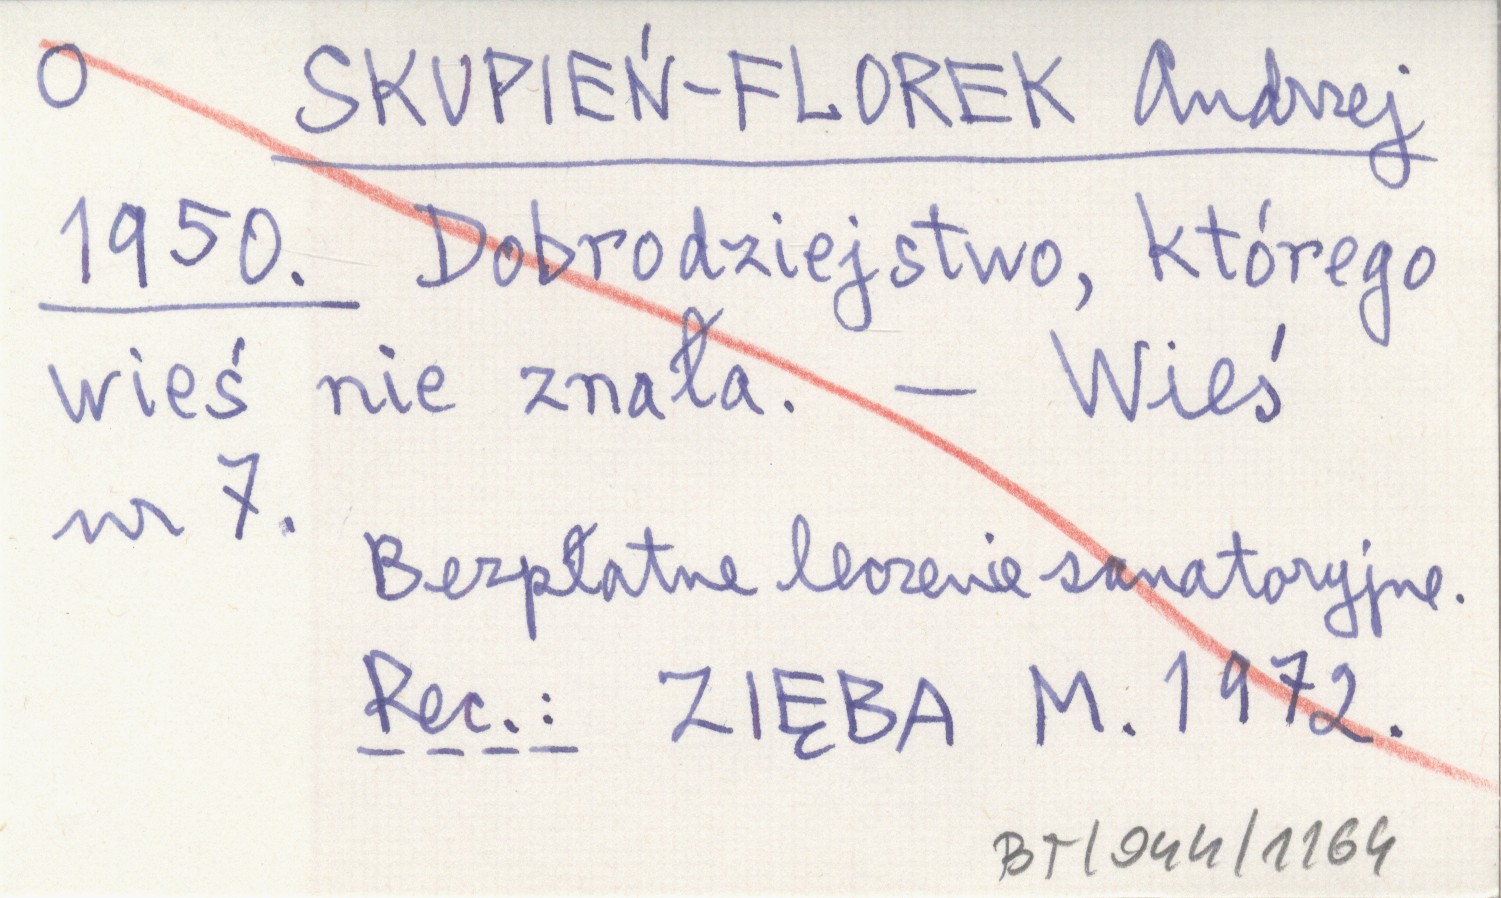 O SKUPIEŃ-FLOREK Andrzej
1950. Dobrodziejstwo, którego
wieś nie znała. — Wieś
nr 7.
Bezpłatne leczenie sanatoryjne.
Rec.: ZIĘBA M. 1972.
BT/944/1164